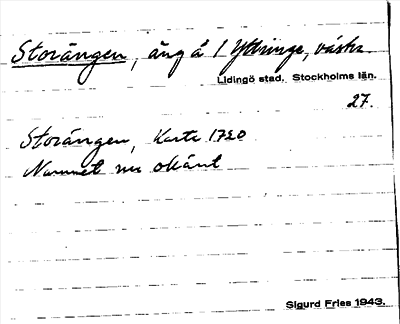 Storängen, äng å 1 Yttringe, västra
Lidingö stad. Stockholms län.
27.
Storängen, Karta 1720
Namnet nu okänt
Sigurd Fries 1943.